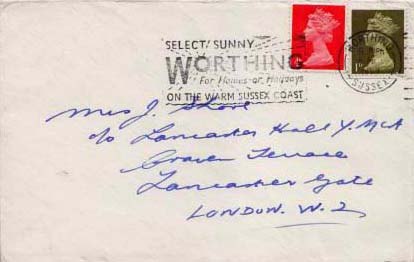 SELECT SUNNY
WORTHING
For Homes or Holidays
ON THE WARM SUSSEX COAST
WORTHING
SUSSEX
1D
Mrs J. Shore
c/o Lancaster Hall Y.M.C.A
Craven Terrace
Lancaster Gate
LONDON. W.2